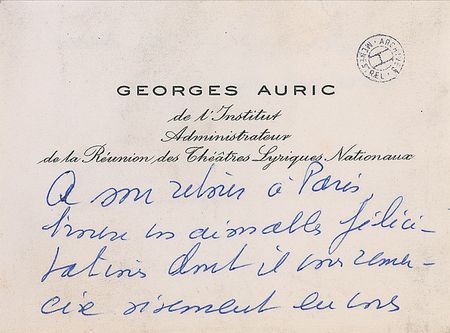 GEORGES AURIC
de l'Institut
Administrateur
de la Réunion des Théâtres Lyriques Nationaux
A son retour à Paris,
trouve vos aimables félici-
tations dont il vous remer-
cie vivement en vous